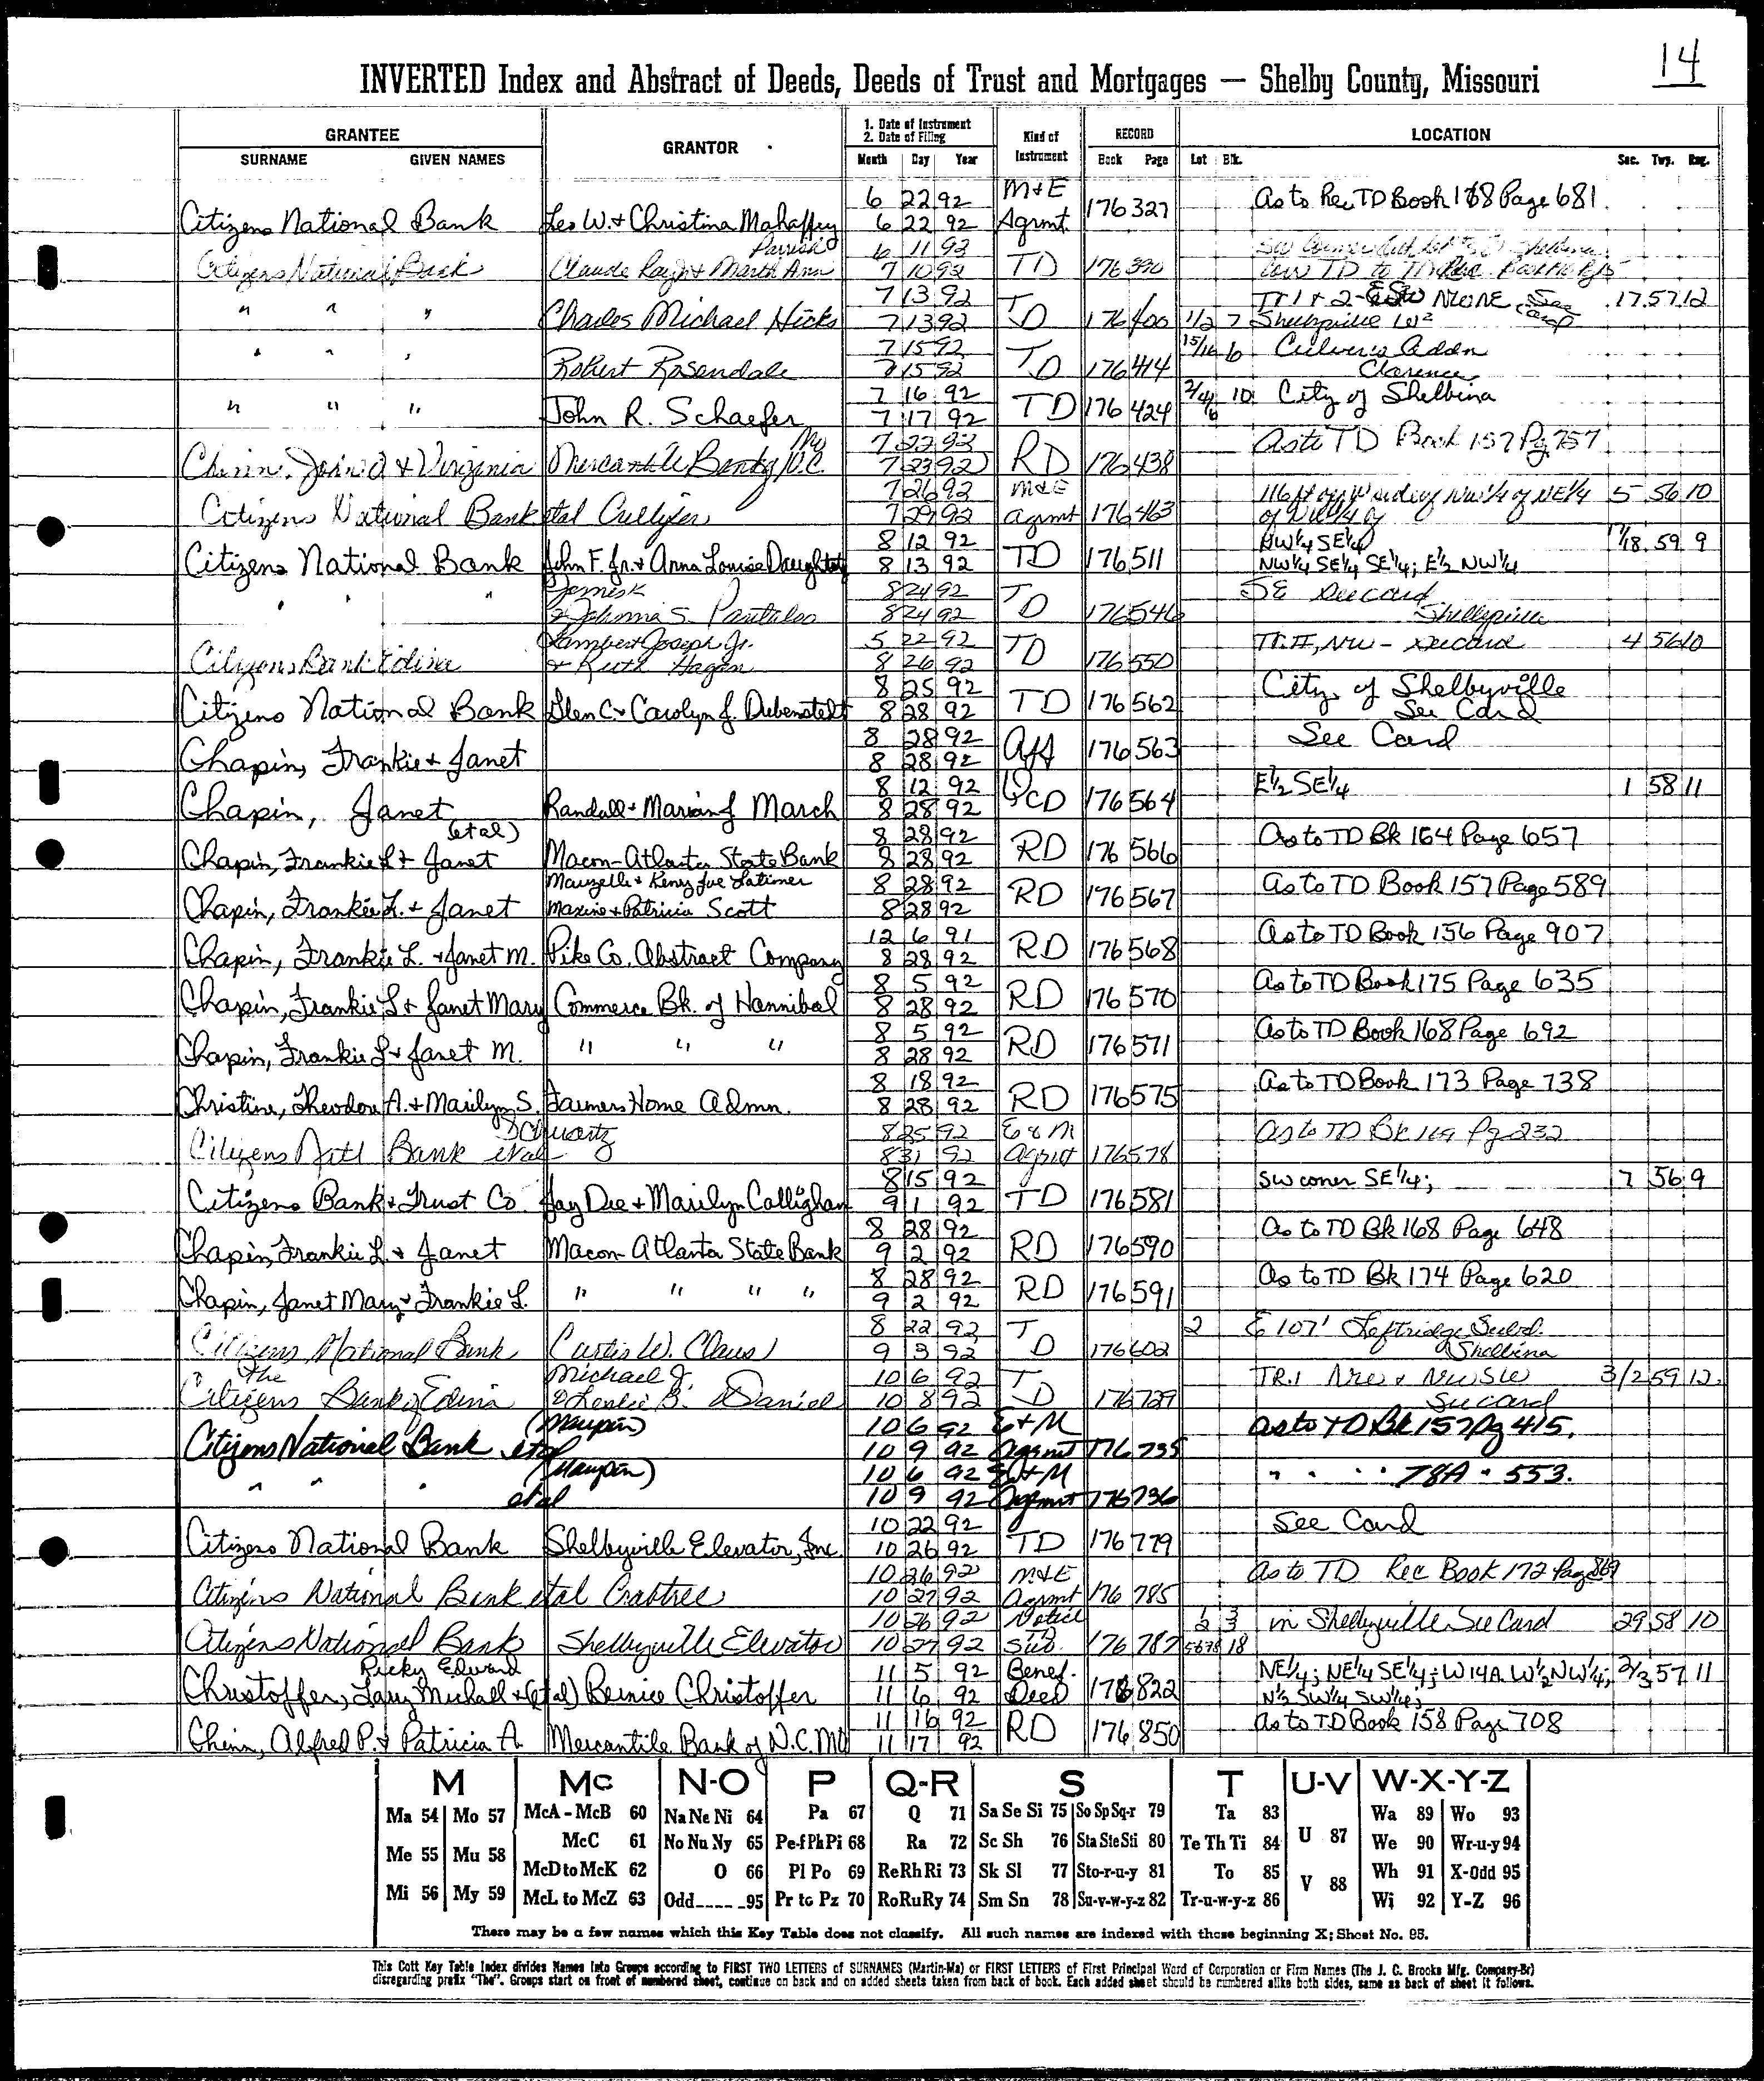 14
INVERTED Index and Abstract of Deeds, Deeds of Trust and Mortgages — Shelby County, Missouri
GRANTEE GRANTOR 1. Date of Instrument 2. Date of Filing Kind of Instrument RECORD LOCATION
SURNAME GIVEN NAMES Month Day Year Book Page Lot Blk. Sec. Twp. Rng.
6 22 92 M+E As to Rec TD Book 168 Page 681
Citizens National Bank Leo W. + Christina Mahaffey 6 22 92 Agrmt. 176 327
Parrish 6 11 92
Citizens National Bank Claude Ray Jr + Martha Ann 7 10 92 TD 176 390
7 13 92 Tr 1 + 2 - NWNE See Card 17 57 12
" " " Charles Michael Hicks 7 13 92 TD 176 400 1/2 7 Shelbyville W2
7 15 92 15/16 6 Culver's Addn
" " " Robert Rosendale 7 15 92 TD 176 414 Clarence
7 16 92 10 City of Shelbina
" " " John R. Schaefer 7 17 92 TD 176 424
7 23 92 As to TD Book 157 Pg 757
Chinn, John A + Virginia Mercantile Bank of N.C. Mo 7 23 92 RD 176 438
7 26 92 M&E 116 ft off W side of NW 1/4 of NE 1/4 5 56 10
Citizens National Bank etal 7 29 92 Agrmt 176 463 of
8 12 92 NW 1/4 SE 1/4 17/18 59 9
Citizens National Bank John F. Jr. + Anna Louise Daughtety 8 13 92 TD 176 511 NW 1/4 SE 1/4 SE 1/4; E 1/2 NW 1/4
8 24 92 SE See card
" " " + Johnna S. Pantaleo 8 24 92 TD 176 546 Shelbyville
Lambert Joseph Jr. 5 22 92 Tr. II, NW - See card 4 56 10
Citizens Bank Edina + Ruth Hagan 8 26 92 TD 176 550
8 25 92 City of Shelbyville
Citizens National Bank Glen C. + Carolyn J. Dubenstelt 8 28 92 TD 176 562 See Card
8 28 92 See Card
Chapin, Frankie + Janet 8 28 92 Aff 176 563
8 12 92 E 1/2 SE 1/4 1 58 11
Chapin, Janet Randall + Marian J. March 8 28 92 QCD 176 564
(etal) 8 28 92 As to TD Bk 164 Page 657
Chapin, Frankie L + Janet Macon-Atlanta State Bank 8 28 92 RD 176 566
Mauzelle + Kenny Joe Latimer 8 28 92 As to TD Book 157 Page 589
Chapin, Frankie L. + Janet Maxine + Patricia Scott 8 28 92 RD 176 567
12 6 91 As to TD Book 156 Page 907
Chapin, Frankie L. + Janet M. Pike Co. Abstract Company 8 28 92 RD 176 568
8 5 92 As to TD Book 175 Page 635
Chapin, Frankie L + Janet Mary Commerce Bk. of Hannibal 8 28 92 RD 176 570
8 5 92 As to TD Book 168 Page 692
Chapin, Frankie L + Janet M. " " " 8 28 92 RD 176 571
8 18 92 As to TD Book 173 Page 738
Christine, Theodore A. + Marilyn S. Farmers Home Admn. 8 28 92 RD 176 575
Schwartz 8 25 92 E & M As to TD Bk 169 Pg 232
Citizens Natl Bank etal 8 31 92 Agrmt 176 578
8 15 92 SW coner SE 1/4; 7 56 9
Citizens Bank + Trust Co. Jay Dee + Marilyn Callighan 9 1 92 TD 176 581
8 28 92 As to TD Bk 168 Page 648
Chapin, Frankie L. + Janet Macon-Atlanta State Bank 9 2 92 RD 176 590
8 28 92 As to TD Bk 174 Page 620
Chapin, Janet Mary + Frankie L. " " " " 9 2 92 RD 176 591
8 22 92 2 E 107' Leftridge Subd.
Citizens National Bank Curtis W. Claus 9 3 92 TD 176 602 Shelbina
The Michael J. 10 6 92 TR. 1 3/2 59 12
Citizens Bank of Edina + Leslie B. Daniel 10 8 92 TD 176 729 See card
(Maupin) 10 6 92 E + M As to TD Bk 157 Pg 415.
Citizens National Bank etal 10 9 92 Agrmt 176 735
(Maupin) 10 6 92 E + M " " " 78A " 553.
" " " etal 10 9 92 Agrmt 176 736
10 22 92 See Card
Citizens National Bank Shelbyville Elevator, Inc. 10 26 92 TD 176 779
10 26 92 M&E As to TD Rec Book 172 Page 869
Citizens National Bank etal Crabtree 10 27 92 Agrmt 176 785
10 26 92 3 in Shelbyville See Card 29 58 10
Citizens National Bank Shelbyville Elevator 10 27 92 176 787 5678 18
Ricky Edward 11 5 92 Benef. NE 1/4; NE 1/4 SE 1/4; W 14A W 1/2 NW 1/4; 2/3 57 11
Christoffer, Larry Michall + (etal) Bernice Christoffer 11 6 92 Deed 176 822 N 1/2 SW 1/4 SW 1/4;
11 16 92 As to TD Book 158 Page 708
Chinn, Alfred P. + Patricia A. Mercantile Bank of N.C. MO 11 17 92 RD 176 850
M Mc N-O P Q-R S T U-V W-X-Y-Z
Ma 54 Mo 57 McA - McB 60 Na Ne Ni 64 Pa 67 Q 71 Sa Se Si 75 So Sp Sq-r 79 Ta 83 U 87 Wa 89 Wo 93
Me 55 Mu 58 McC 61 No Nu Ny 65 Pe-f Ph Pi 68 Ra 72 Sc Sh 76 Sta Ste Sti 80 Te Th Ti 84 We 90 Wr-u-y 94
McD to McK 62 O 66 Pl Po 69 Re Rh Ri 73 Sk Sl 77 Sto-r-u-y 81 To 85 V 88 Wh 91 X-Odd 95
Mi 56 My 59 McL to McZ 63 Odd____95 Pr to Pz 70 Ro Ru Ry 74 Sm Sn 78 Su-v-w-y-z 82 Tr-u-w-y-z 86 Wi 92 Y-Z 96
There may be a few names which this Key Table does not classify. All such names are indexed with those beginning X; Sheet No. 95.
This Cott Key Table Index divides Names Into Groups according to FIRST TWO LETTERS of SURNAMES (Martin-Ma) or FIRST LETTERS of First Principal Word of Corporation or Firm Names (The J. C. Brooks Mfg. Company-Br)
disregarding prefix "The". Groups start on front of numbered sheet, continue on back and on added sheets taken from back of book. Each added sheet should be numbered alike both sides, same as back of sheet it follows.